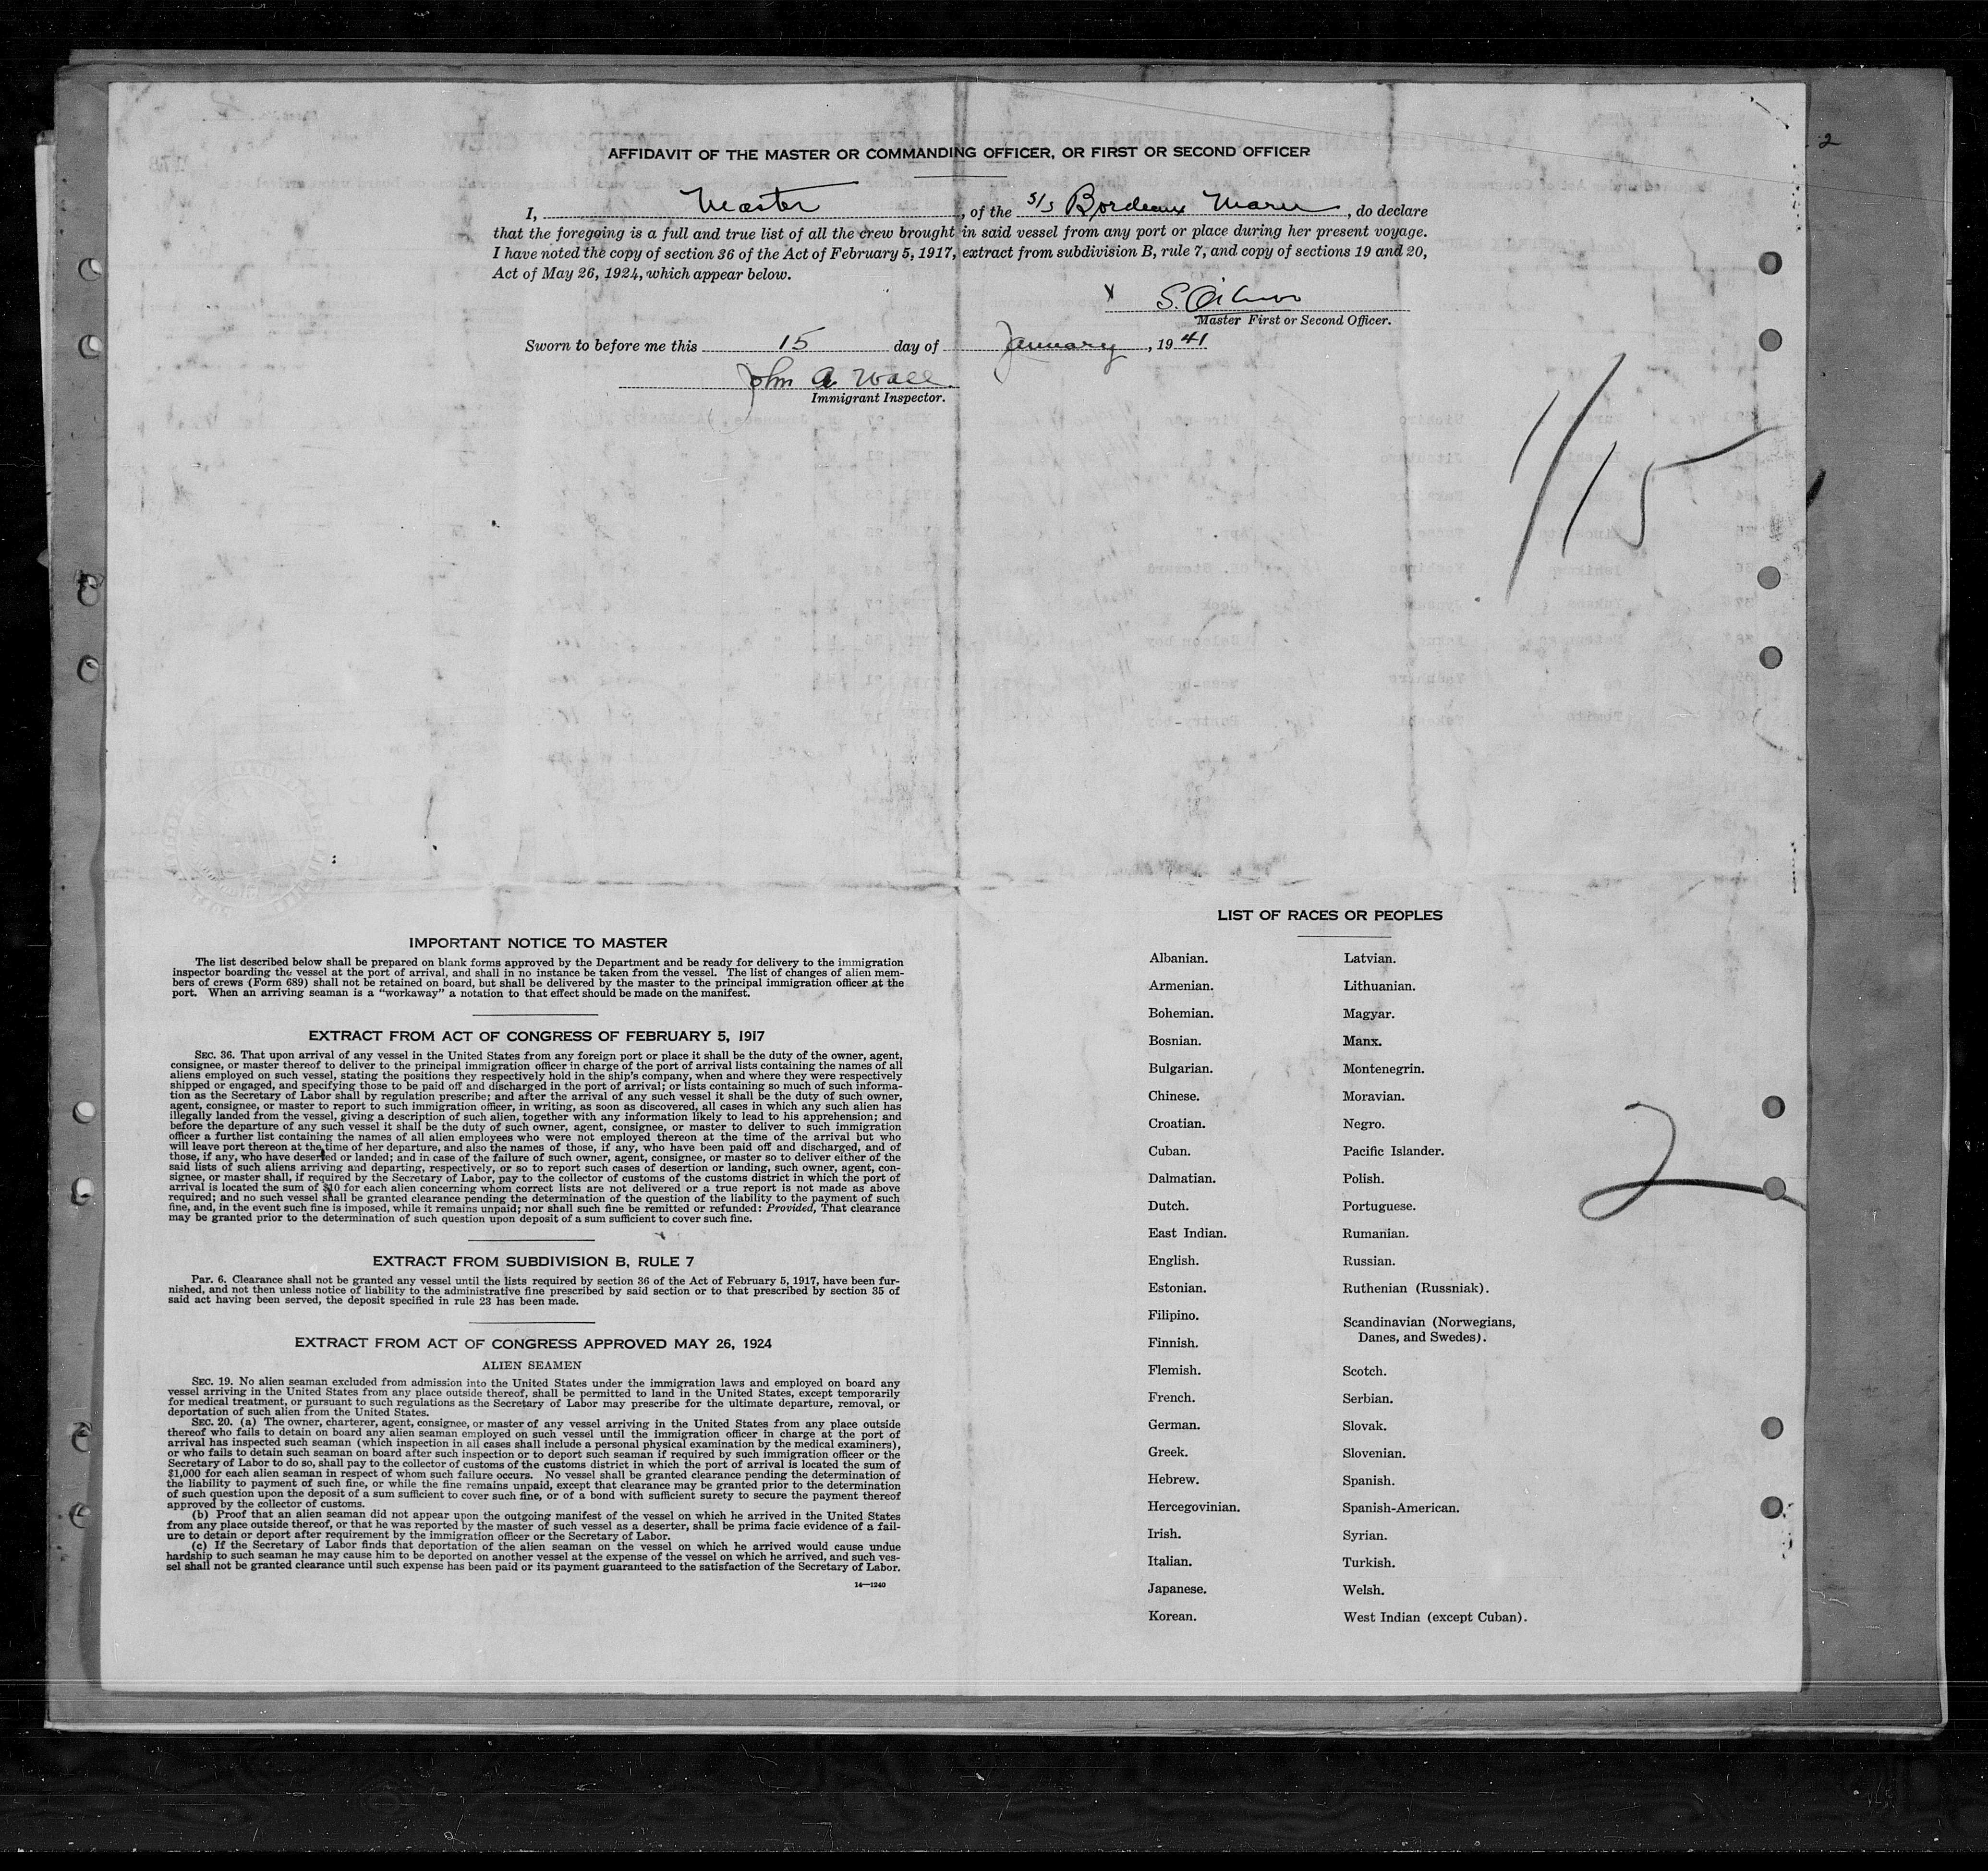 AFFIDAVIT OF THE MASTER OR COMMANDING OFFICER, OR FIRST OR SECOND OFFICER
I, Master, of the S/S Bordeaux Maru, do declare
that the foregoing is a full and true list of all the crew brought in said vessel from any port or place during her present voyage.
I have noted the copy of section 36 of the Act of February 5, 1917, extract from subdivision B, rule 7, and copy of sections 19 and 20,
Act of May 26, 1924, which appear below.
x S.
Master First or Second Officer.
Sworn to before me this 15 day of January, 1941
John A. Wall
Immigrant Inspector.
2
1/15
IMPORTANT NOTICE TO MASTER
The list described below shall be prepared on blank forms approved by the Department and be ready for delivery to the immigration
inspector boarding the vessel at the port of arrival, and shall in no instance be taken from the vessel. The list of changes of alien mem-
bers of crews (Form 689) shall not be retained on board, but shall be delivered by the master to the principal immigration officer at the
port. When an arriving seaman is a "workaway" a notation to that effect should be made on the manifest.
EXTRACT FROM ACT OF CONGRESS OF FEBRUARY 5, 1917
SEC. 36. That upon arrival of any vessel in the United States from any foreign port or place it shall be the duty of the owner, agent,
consignee, or master thereof to deliver to the principal immigration officer in charge of the port of arrival lists containing the names of all
aliens employed on such vessel, stating the positions they respectively hold in the ship's company, when and where they were respectively
shipped or engaged, and specifying those to be paid off and discharged in the port of arrival; or lists containing so much of such informa-
tion as the Secretary of Labor shall by regulation prescribe; and after the arrival of any such vessel it shall be the duty of such owner,
agent, consignee, or master to report to such immigration officer, in writing, as soon as discovered, all cases in which any such alien has
illegally landed from the vessel, giving a description of such alien, together with any information likely to lead to his apprehension; and
before the departure of any such vessel it shall be the duty of such owner, agent, consignee, or master to deliver to such immigration
officer a further list containing the names of all alien employees who were not employed thereon at the time of the arrival but who
will leave port thereon at the time of her departure, and also the names of those, if any, who have been paid off and discharged, and of
those, if any, who have deserted or landed; and in case of the failure of such owner, agent, consignee, or master so to deliver either of the
said lists of such aliens arriving and departing, respectively, or so to report such cases of desertion or landing, such owner, agent, con-
signee, or master shall, if required by the Secretary of Labor, pay to the collector of customs of the customs district in which the port of
arrival is located the sum of $10 for each alien concerning whom correct lists are not delivered or a true report is not made as above
required; and no such vessel shall be granted clearance pending the determination of the question of the liability to the payment of such
fine, and, in the event such fine is imposed, while it remains unpaid; nor shall such fine be remitted or refunded: Provided, That clearance
may be granted prior to the determination of such question upon deposit of a sum sufficient to cover such fine.
EXTRACT FROM SUBDIVISION B, RULE 7
Par. 6. Clearance shall not be granted any vessel until the lists required by section 36 of the Act of February 5, 1917, have been fur-
nished, and not then unless notice of liability to the administrative fine prescribed by said section or to that prescribed by section 35 of
said act having been served, the deposit specified in rule 23 has been made.
EXTRACT FROM ACT OF CONGRESS APPROVED MAY 26, 1924
ALIEN SEAMEN
SEC. 19. No alien seaman excluded from admission into the United States under the immigration laws and employed on board any
vessel arriving in the United States from any place outside thereof, shall be permitted to land in the United States, except temporarily
for medical treatment, or pursuant to such regulations as the Secretary of Labor may prescribe for the ultimate departure, removal, or
deportation of such alien from the United States.
SEC. 20. (a) The owner, charterer, agent, consignee, or master of any vessel arriving in the United States from any place outside
thereof who fails to detain on board any alien seaman employed on such vessel until the immigration officer in charge at the port of
arrival has inspected such seaman (which inspection in all cases shall include a personal physical examination by the medical examiners),
or who fails to detain such seaman on board after such inspection or to deport such seaman if required by such immigration officer or the
Secretary of Labor to do so, shall pay to the collector of customs of the customs district in which the port of arrival is located the sum of
$1,000 for each alien seaman in respect of whom such failure occurs. No vessel shall be granted clearance pending the determination of
the liability to payment of such fine, or while the fine remains unpaid, except that clearance may be granted prior to the determination
of such question upon the deposit of a sum sufficient to cover such fine, or of a bond with sufficient surety to secure the payment thereof
approved by the collector of customs.
(b) Proof that an alien seaman did not appear upon the outgoing manifest of the vessel on which he arrived in the United States
from any place outside thereof, or that he was reported by the master of such vessel as a deserter, shall be prima facie evidence of a fail-
ure to detain or deport after requirement by the immigration officer or the Secretary of Labor.
(c) If the Secretary of Labor finds that deportation of the alien seaman on the vessel on which he arrived would cause undue
hardship to such seaman he may cause him to be deported on another vessel at the expense of the vessel on which he arrived, and such ves-
sel shall not be granted clearance until such expense has been paid or its payment guaranteed to the satisfaction of the Secretary of Labor.
14—1240
LIST OF RACES OR PEOPLES
Albanian.
Armenian.
Bohemian.
Bosnian.
Bulgarian.
Chinese.
Croatian.
Cuban.
Dalmatian.
Dutch.
East Indian.
English.
Estonian.
Filipino.
Finnish.
Flemish.
French.
German.
Greek.
Hebrew.
Hercegovinian.
Irish.
Italian.
Japanese.
Korean.
Latvian.
Lithuanian.
Magyar.
Manx.
Montenegrin.
Moravian.
Negro.
Pacific Islander.
Polish.
Portuguese.
Rumanian.
Russian.
Ruthenian (Russniak).
Scandinavian (Norwegians,
Danes, and Swedes).
Scotch.
Serbian.
Slovak.
Slovenian.
Spanish.
Spanish-American.
Syrian.
Turkish.
Welsh.
West Indian (except Cuban).
2